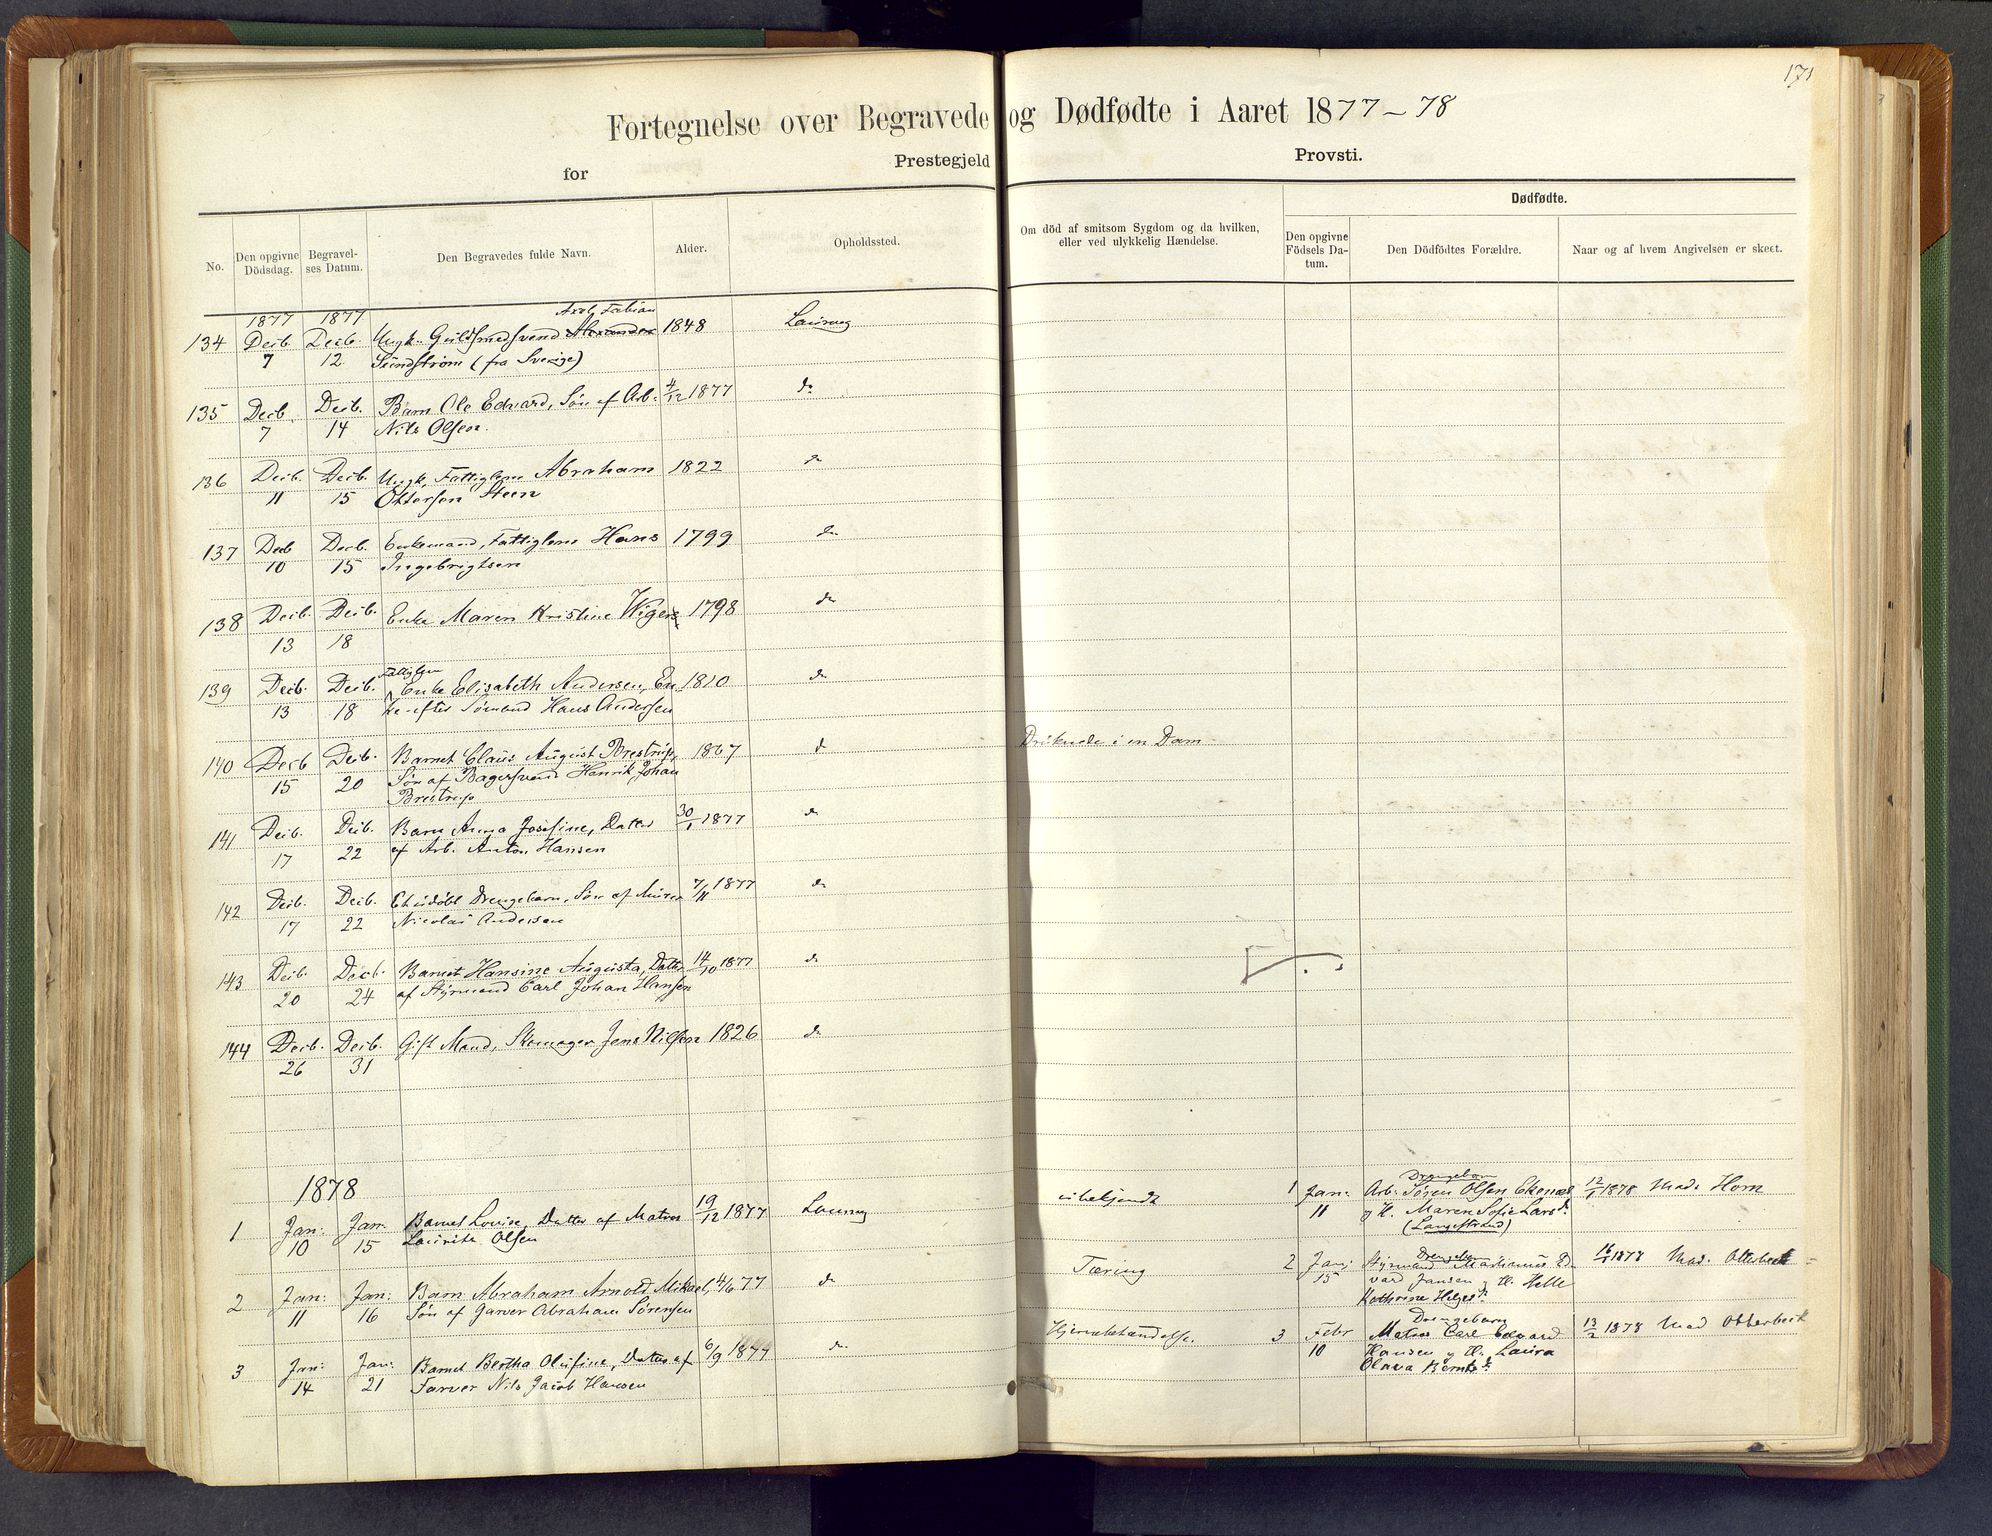 171
Fortegnelse over Begravede og Dødfødte i Aaret 1877-78
for Prestegjeld Provsti.
No.
Den opgivne Dödsdag.
Begravelses Datum.
Den Begravedes fulde Navn.
Alder.
Opholdssted.
Om död af smitsom Sygdom og da hvilken,
eller ved ulykkelig Hændelse.
Dødfødte.
Den opgivne Födsels Datum.
Den Dödfödtes Forældre.
Naar og af hvem Angivelsen er skeet.
1877 1877 Axel Fabian
134 Decb. Decb. Ungk. Guldsmedsvend Alexander 1848 Laurvig
7 12 Sundstrøm (fra Sverige)
135 Decb. Decb. Barn Ole Edvard, Søn af Arb. 4/12 1877 do
7 14 Nils Olsen.
136 Decb. Decb. Ungk. Fattiglem Abraham 1822 do
11 15 Ottersen Steen
137 Decb Decb. Enkemand, Fattiglem Hans 1799 do
10 15 Ingebrigtsen
138 Decb. Decb. Enke Maren Kristine Wigers 1798 do
13 18
Fattiglem
139 Decb. Decb. Enke Elisabeth Andersen, En- 1810 do
13 18 ke efter Sømand Hans Andersen
140 Decb Decb. Barnet Claus August Brestrup, 1867 do Druknede i en Dam
15 20 Søn af Bagersvend Henrik Johan
Brestrup
141 Decb. Decb. Barn Anna Josefine, Datter 30/1 1877 do
17 22 af Arb. Anton Hansen
142 Decb. Decb. Et udøbt Drengebarn, Søn af Murer 7/11 1877 do
17 22 Nicolai Andersen
143 Decb. Decb. Barnet Hansine Augusta, Datter 14/10 1877 do
20 24 af Styrmand Carl Johan Hansen
144 Decb. Decb. Gift Mand, Skomager Jens Nilsen 1826 do
26 31
1878
Drengebarn
1 Jan: Jan: Barnet Lovise, Datter af Matros 19/12 1877 Laurvig ubekjendt 1 Jan: Arb. Søren Olsen Ekenæs 12/1 1878 Mad. Horn
10 15 Laurits Olsen 11 og H. Maren Sofie Larsdr
(Langestrand)
Drengebarn
2 Jan: Jan: Barn Abraham Arnold Mikael, 4/6 77 do Tæring 2 Jan: Styrmand Martinius Ed- 16/1 1878 Mad. Otterbeck
11 16 Søn af Garver Abraham Sørensen 15 vard Jansen og H. Helle
Kathrine Helgesdr
Drengebarn
3 Jan: Jan: Barnet Bertha Olufine, Datter af 6/9 1877 do Hjernebetændelse. 3 Febr Matros Carl Edvard 13/2 1878 Mad Otterbeck
14 21 Farver Nils Jacob Hansen 10 Hansen og H. Laura
Olava Berntsdr